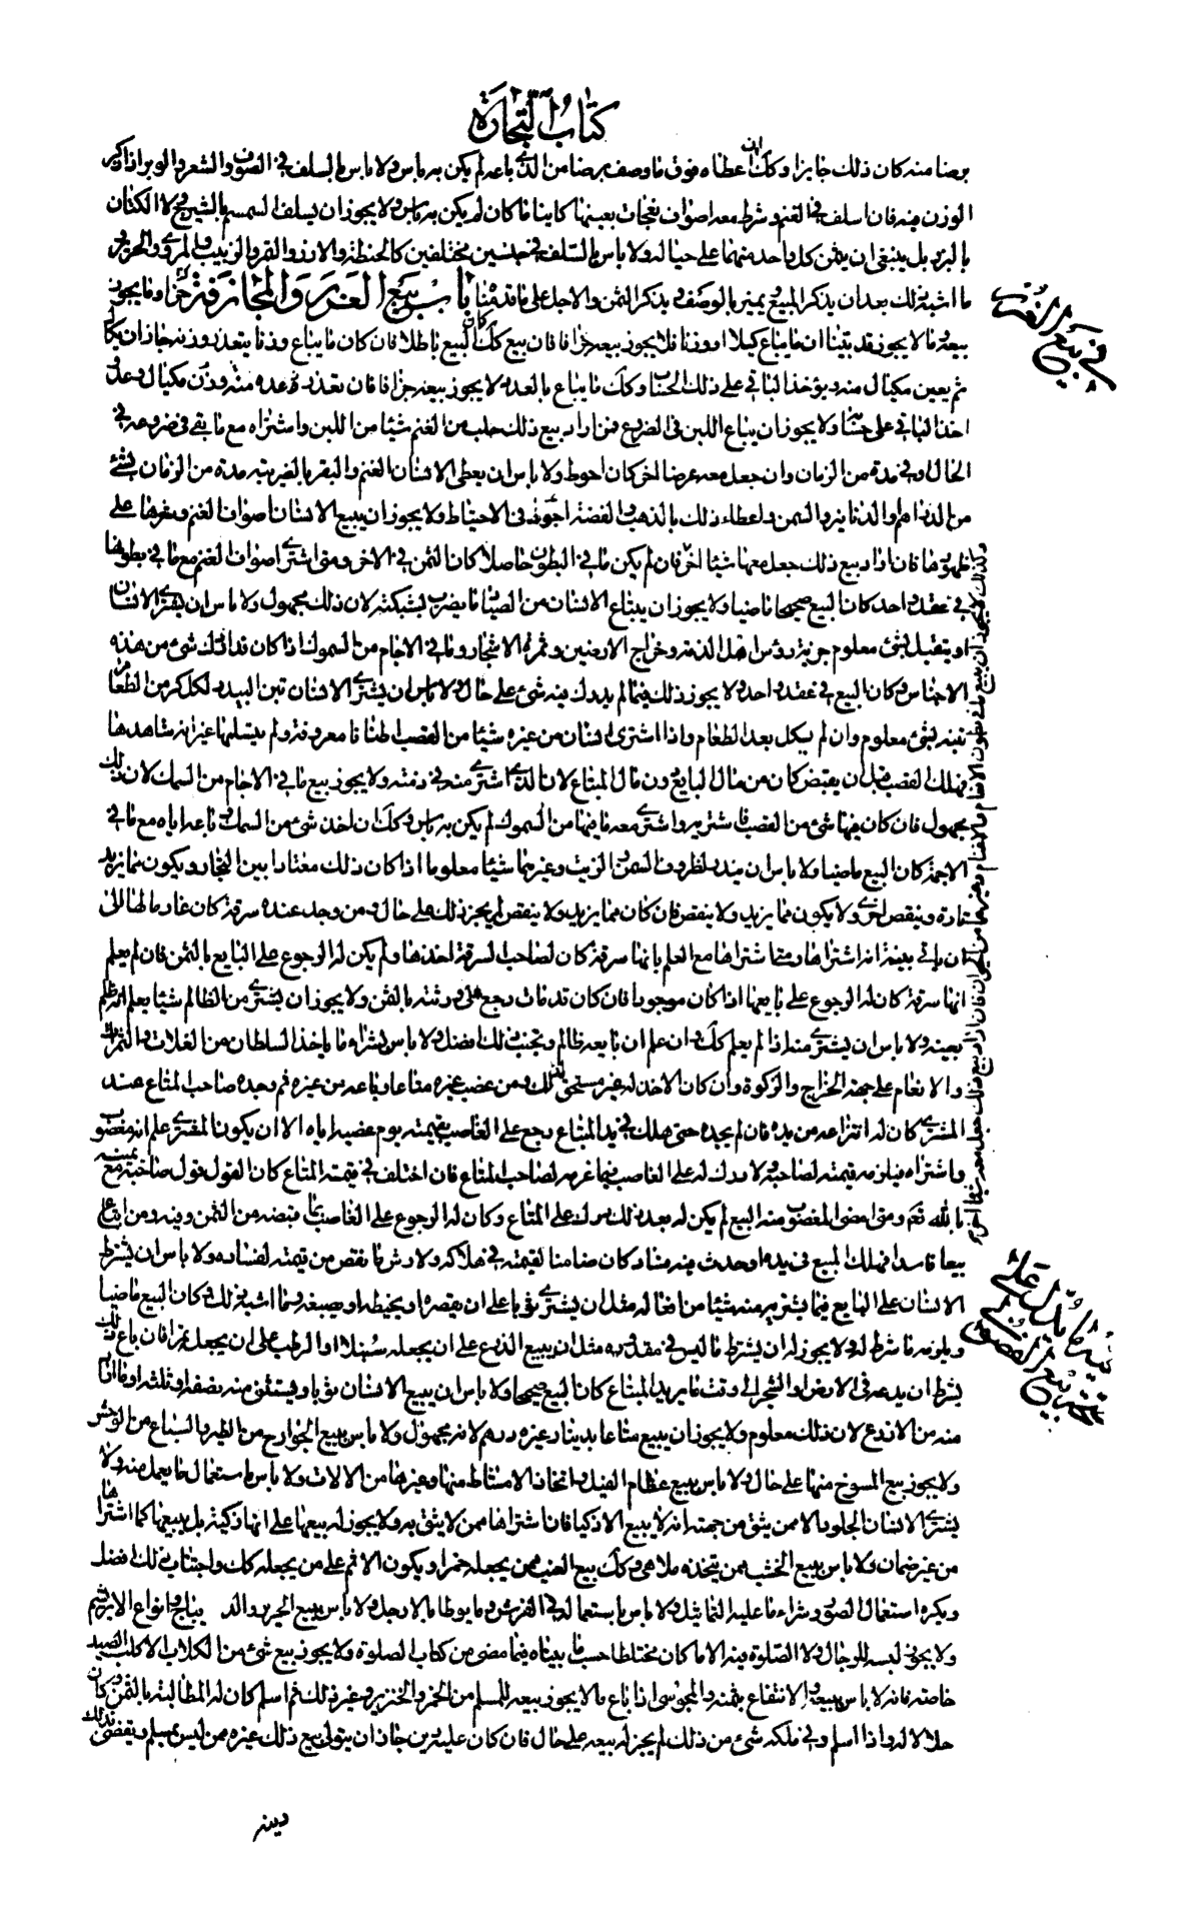 كتاب التجارة
برضا منه كان ذلك جايزا وكك ان اعطاه فوق ما وصف برضا من الذى باعه لم يكن به باس ولا باس بالسلف فى الصوف والشعر والوبر اذا ذكر
الوزن فيه فان اسلف فى الغنم وشرط معه اصواف نعجات بعينها كاينا ما كان لم يكن به باس ولا يجوز ان يسلف السمسم بالشيرج ولا الكتان
بالبزر بل ينبغى ان يثمن كل واحد منهما على حياله ولا باس بالسلف فى جنسين مختلفين كالحنطة والارز والتمر والزبيب والمروى والحرير و
ما اشبه ذلك بعد ان يذكر المبيع ويميز بالوصف ويذكر الثمن والاجل على ما قدمناه باب بيع الغرر والمجازفة وما يجوز
بيعه وما لا يجوز قد بينا ان ما يباع كيلا او وزنا فلا يجوز بيعه جزافا فان بيع كك كان البيع باطلا فان كان ما يباع وزنا يتعذر وزنه جاز ان يكال
ثم يعين مكيال منه ويؤخذ الباقى على ذلك الحساب وكك ما يباع بالعدد لا يجوز بيعه جزافا فان تعذر عده وزن منه مكيال وعد و
اخذ الباقى على حسابه ولا يجوز ان يباع اللبن فى الضروع فمن اراد بيع ذلك حلب من الغنم شيئا من اللبن واشتراه مع ما بقى فى ضروعه فى
الحال او فى مدة من الزمان وان جعل معه عرضا اخر كان احوط ولا باس ان يعطى الانسان الغنم والبقر بالضريبة مدة من الزمان بشئ
من الدراهم والدنانير والسمن واعطاء ذلك بالذهب والفضة اجود فى الاحتياط ولا يجوز ان يبيع الانسان اصواف الغنم وشعرها على
ظهورها فان اراد بيع ذلك جعل معها شيئا اخر فان لم يكن ما فى البطون حاصلا كان الثمن فى الاخر ومتى اشترى اصواف الغنم مع ما فى بطونها
فى عقد واحد كان البيع صحيحا ماضيا ولا يجوز ان يبتاع الانسان من الصياد ما يضرب بشبكته لان ذلك مجهول ولا باس ان يشترى الانسان
او يتقبل بشئ معلوم جزية رؤس اهل الذمة وخراج الارضين وثمرة الاشجار وما فى الاجام من السموك اذا كان قد ادرك شئ من هذه
الاجناس وكان البيع فى عقد واحد ولا يجوز ذلك فيما لم يدرك منه شئ على حال ولا باس ان يشترى الانسان تبن البيدر لكل كر من الطعام
تبنه بشئ معلوم وان لم يكل بعد الطعام واذا اشترى انسان من غيره شيئا من القصب اطنانا معروفة ولم يتسلمها غير انه شاهدها
فهلك القصب قبل ان يقبض كان من مال البايع دون مال المبتاع لان الذى اشترى منه فى ذمته ولا يجوز بيع ما فى الاجام من السمك لان ذلك
مجهول فان كان فيها شئ من القصب فاشتريه واشترى معه ما فيها من السموك لم يكن به باس وكك ان اخذ شئ من السمك وباعه اياه مع ما فى
الاجمة كان البيع ماضيا ولا باس ان يندر لظروف السمن والزيت وغيرهما شيئا معلوما اذا كان ذلك معتادا بين التجار ويكون مما يزيد
تارة وينقص اخرى ولا يكون مما يزيد ولا ينقص فان كان مما يزيد ولا ينقص لم يجز ذلك على حال ومن وجد عنده سرقة كان غارما لها الا
ان ياتى ببينة انه اشتراها ومتى اشتراها مع العلم بانها سرقة كان لصاحب السرقة اخذها ولم يكن له الرجوع على البايع بالثمن فان لم يعلم
انها سرقة كان له الرجوع على بايعها اذا كان موجودا فان كان قد مات رجع على ورثته بالثمن ولا يجوز ان يشترى من الظالم شيئا يعلم انه ظلم
بعينه ولا باس ان يشترى منه اذا لم يعلم كك وان علم ان بايعه ظالم وتجنب ذلك افضل ولا باس بشراء ما ياخذ السلطان من الغلات والثمرات
والانعام على جهة الخراج والزكوة وان كان الاخذ له غير مستحق لذلك ومن غصب غيره متاعا وباعه من غيره ثم وجده صاحب المتاع عند
المشترى كان له انتزاعه من يده فان لم يجده حتى هلك فى يد المبتاع رجع على الغاصب بقيمته يوم غصبه اياه الا ان يكون المشترى علم انه مغصوب
واشتراه فيلزمه قيمته لصاحبه ولا درك له على الغاصب فيما غرمه لصاحب المتاع فان اختلف فى قيمة المتاع كان القول قول صاحبه مع يمينه
بالله تعم ومتى امضى المغصوب منه البيع لم يكن له بعد ذلك درك على المتاع وكان له الرجوع على الغاصب بما قبضه من الثمن فيه ومن ابتاع
بيعا فاسدا فهلك المبيع فى يده او حدث فيه فساد كان ضامنا لقيمته فى هلاكه ولارش ما نقص من قيمته لفساده ولا باس ان يشترط
الانسان على البايع فيما يشتريه منه شيئا من افعاله مثل ان يشترى ثوبا على ان يقصره او يخيطه او يصبغه وما اشبه ذلك وكان البيع ماضيا
ويلزمه ما شرط له ولا يجوز له ان يشترط ما ليس فى مقدوره مثل ان يبيع الزرع على ان يجعله سنبلا او الرطب على ان يجعله تمرا فان باع ذلك
بشرط ان يدعه فى الارض او الشجر الى وقت ما يريد المبتاع كان البيع صحيحا ولا باس ان يبيع الانسان ثوبا ويستثنى منه نصفه او ثلثه او ما اراد
منه من الاذرع لان ذلك معلوم ولا يجوز ان يبيع متاعا بدينار غير درهم لانه مجهول ولا باس ببيع الجوارح من الطير والسباع من الوحش
ولا يجوز بيع المسوخ منها على حال ولا باس ببيع عظام الفيل واتخاذ الامشاط منها وغيرها من الالات ولا باس باستعمال ما يعمل منه ولا
يشترى الانسان الجلود الا ممن يثق من جهته انه لا يبيع الا ذكيا فان اشتراها ممن لا يثق به ولا يجوز له بيعها على انها ذكية بل يبيعها كما اشتراها
من غير ضمان ولا باس ببيع الخشب ممن يتخذه ملاهى وكك بيع العنب ممن يجعله خمرا ويكون الاثم على من يجعله كك واجتناب ذلك افضل
ويكره استعمال الصور وشراء ما عليه التماثيل ولا باس باستعماله فى الفرش وما يوطا بالارجل ولا باس ببيع الحرير والديباج وانواع الابريسم
ولا يجوز لبسه للرجال ولا الصلوة فيه الا ما كان مختلطا حسب ما بيناه فيما مضى من كتاب الصلوة ولا يجوز بيع شئ من الكلاب الا كلب الصيد
خاصة فانه لا باس ببيعه والانتفاع بثمنه والمجوسى اذا باع ما لا يجوز بيعه للمسلم من الخمر والخنزير وغير ذلك ثم اسلم كان له المطالبة بالثمن وكان
حلالا له واذا اسلم وفى ملكه شئ من ذلك لم يجز له بيعه على حال فان كان عليه دين جاز ان يتولى بيع ذلك غيره ممن ليس بمسلم ويقضى بذلك
دينه
فى بيع الغرر
وكذلك لا يجوز ان يبيع ما فى بطون الانعام والاغنام وغيرهما من الحيوان فان اراد بيع ذلك جعل معه شيئا اخر
فيه ما يدل على صحة بيع الفضولى